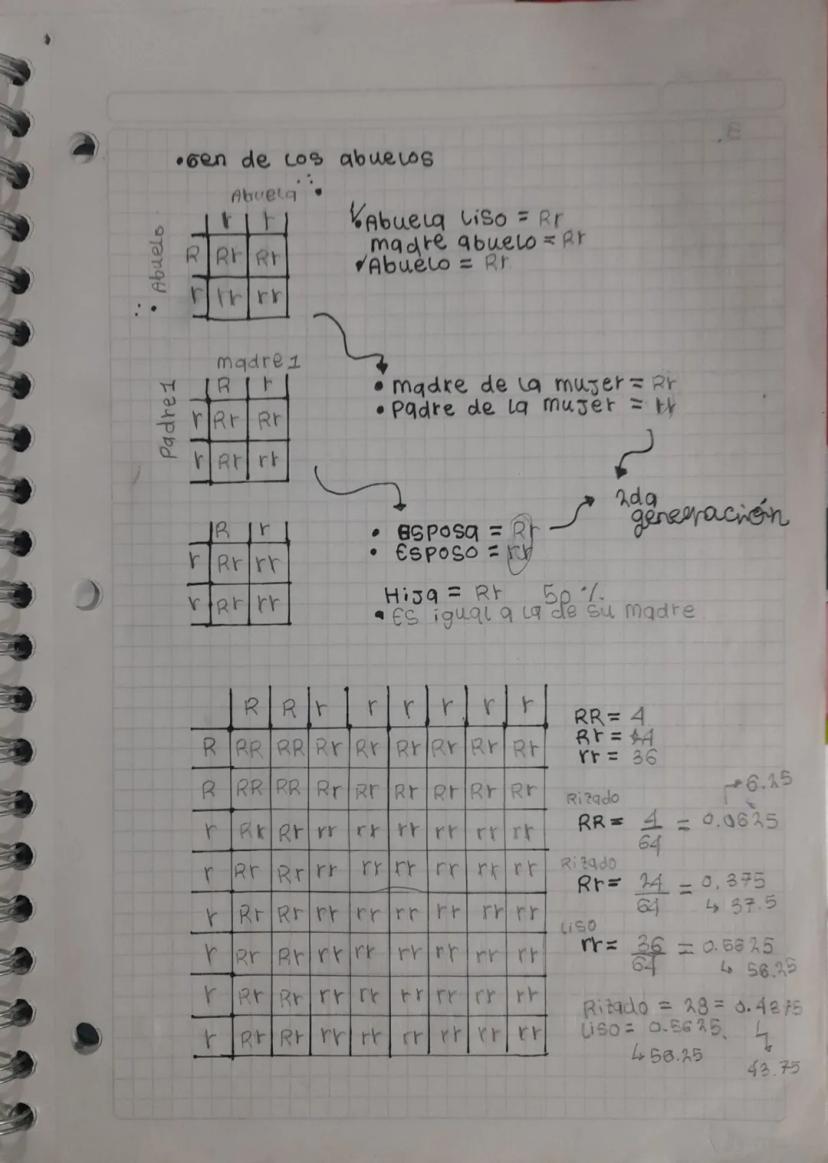 •Gen de los abuelos
Abuela
Abuelo
r r
R Rr Rr
r rr rr
Abuela liso = Rr
madre abuelo = Rr
Abuelo = Rr
madre 1
Padre 1
R r
r Rr Rr
r Rr rr
• madre de la mujer = Rr
• Padre de la mujer = rr
2da
generación
R r
r Rr rr
r Rr rr
• esposa = Rr
• Esposo = rr
Hija = Rr 50 %
• Es igual a la de su madre
R R r r r r r r
R RR RR Rr Rr Rr Rr Rr Rr
R RR RR Rr Rr Rr Rr Rr Rr
r Rr Rr rr rr rr rr rr rr
r Rr Rr rr rr rr rr rr rr
r Rr Rr rr rr rr rr rr rr
r Rr Rr rr rr rr rr rr rr
r Rr Rr rr rr rr rr rr rr
r Rr Rr rr rr rr rr rr rr
RR = 4
Rr =
rr = 36
6.25
Rizado
RR = 4/64 = 0.0625
Rizado
Rr = 24/64 = 0,375
↳ 37.5
Liso
rr = 36/64 = 0.5625
↳ 56.25
Rizado = 28 = 0.4375
Liso = 0.5625
↳ 56.25
43.75